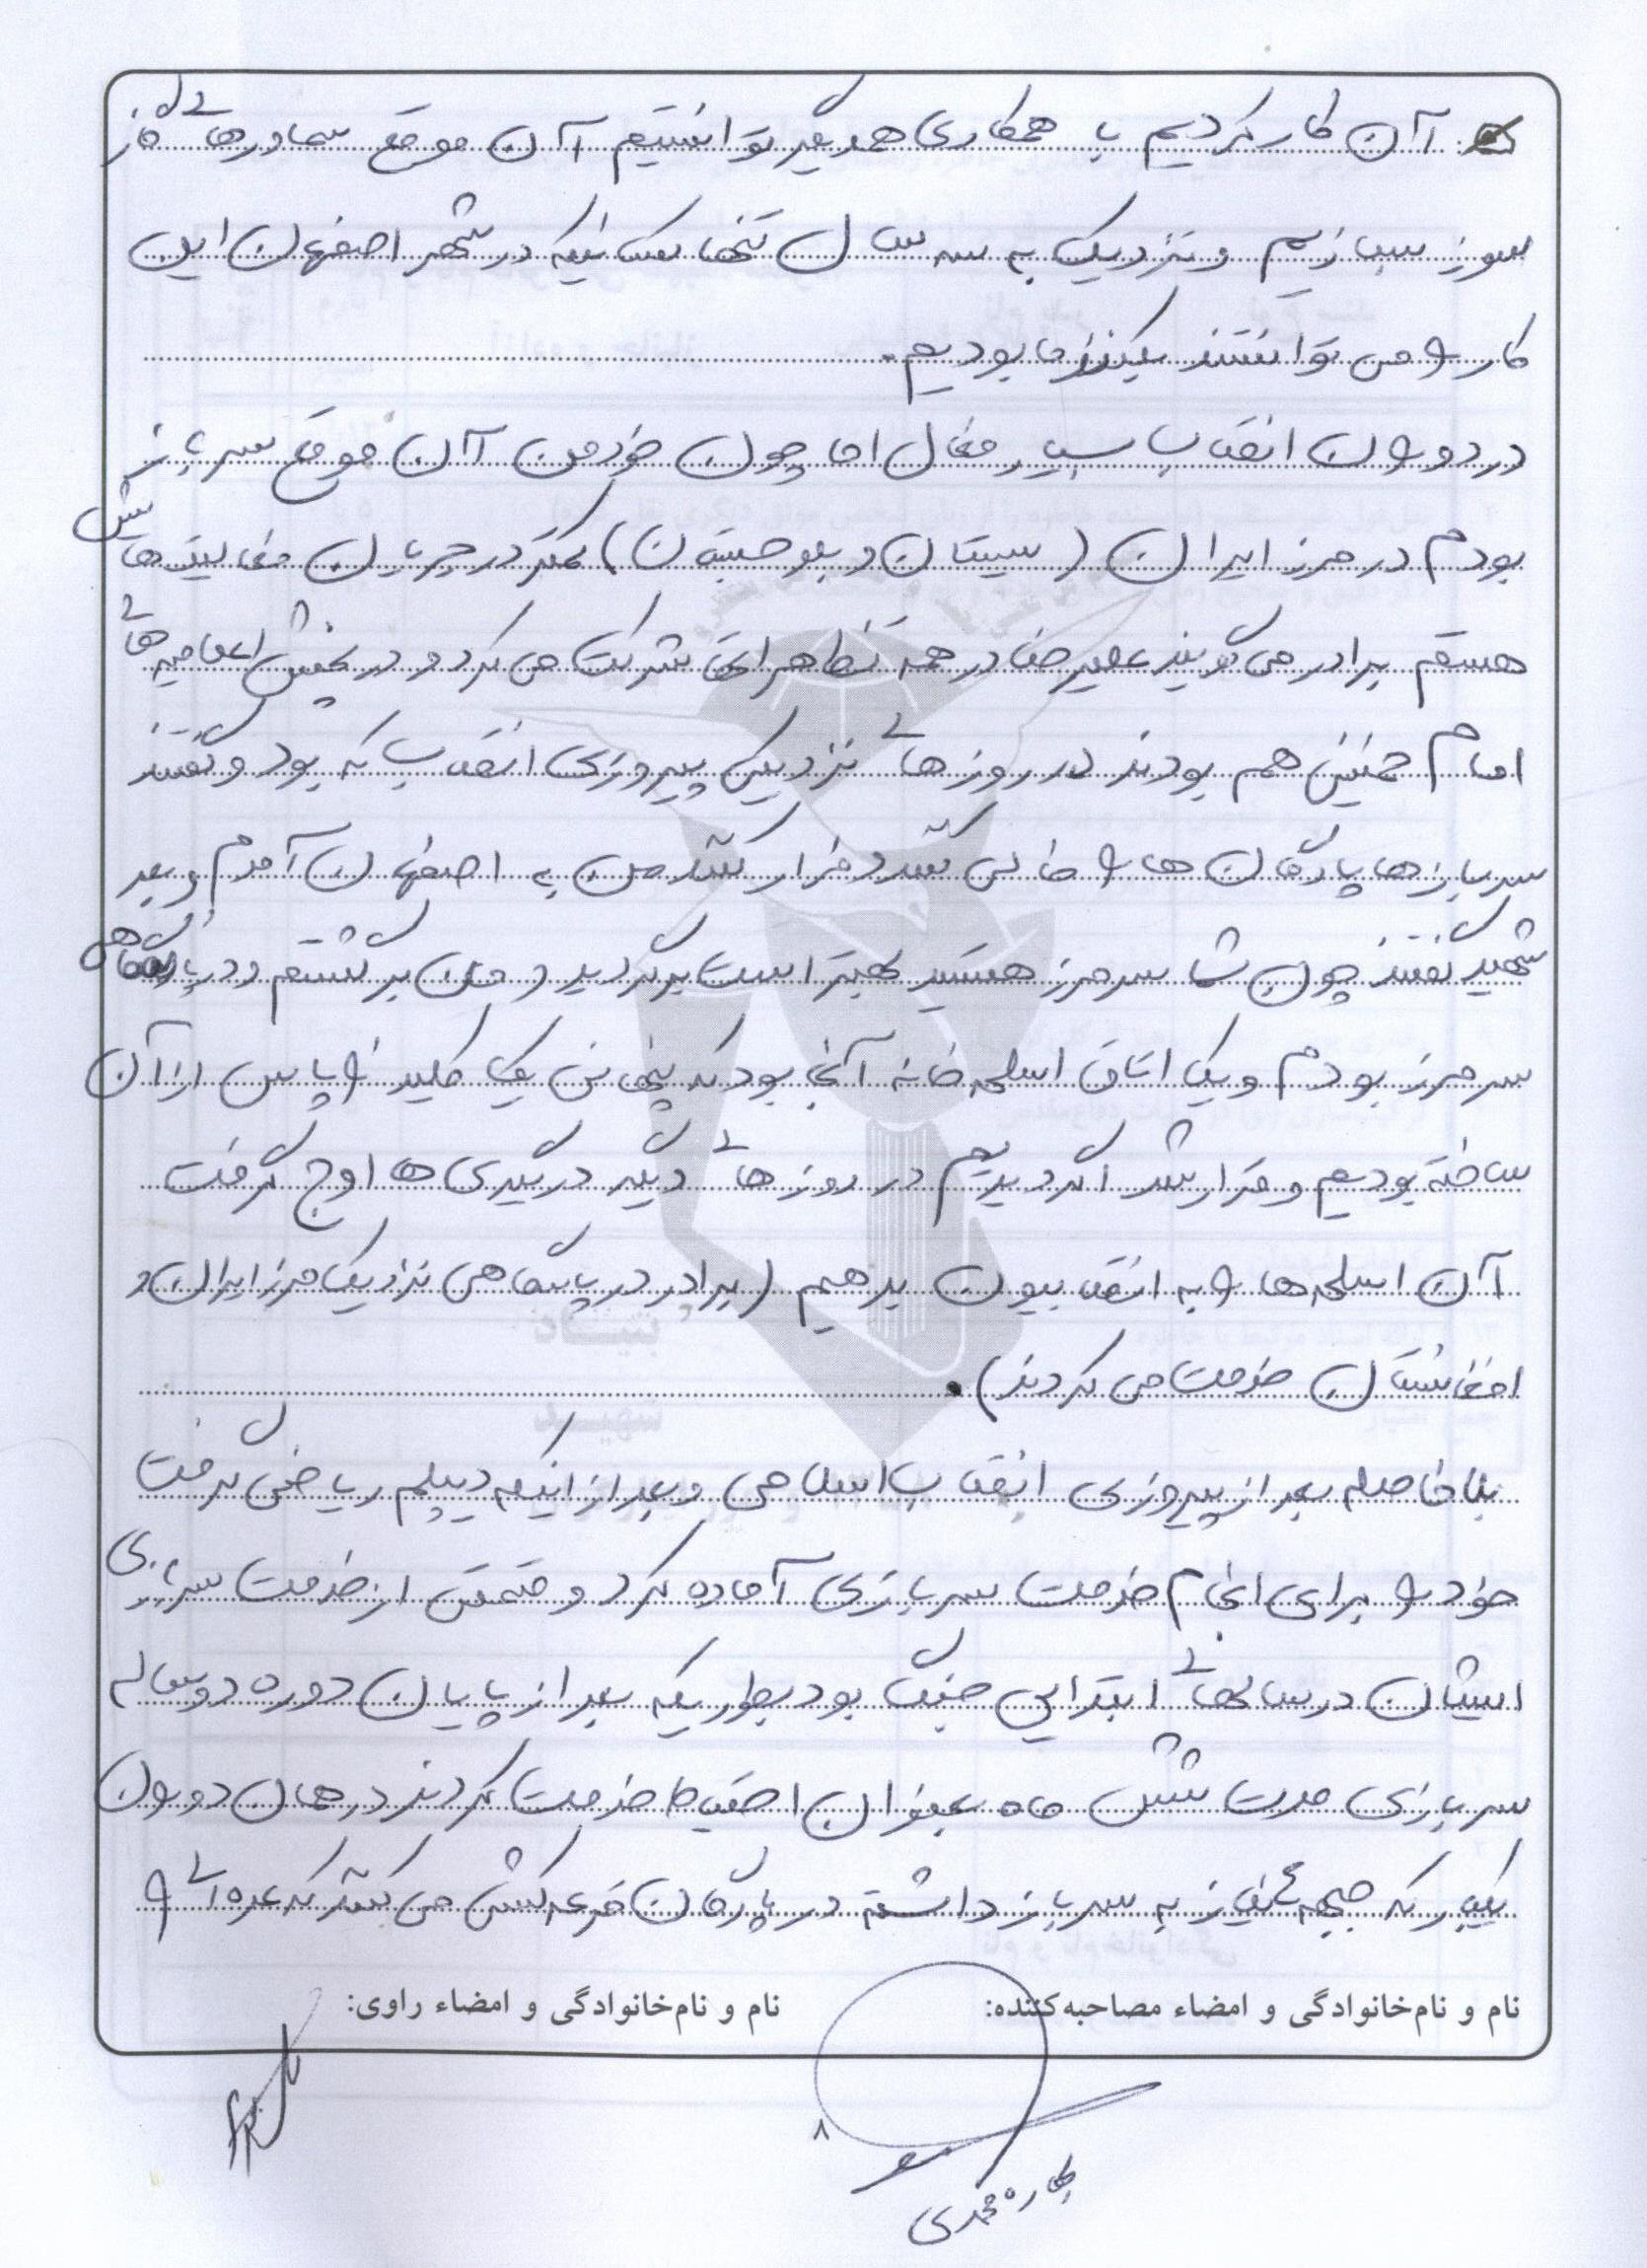 آن کار کردیم با همکاری همدیگر توانستیم آن موقع سماورهای گاز
سوز بسازیم و نزدیک به سه سال تنها کسانیکه در شهر اصفهان این
کار را می توانستند بکنند ما بودیم.
در دوران انقلاب بسیار فعال اما چون خود من آن موقع سرباز
بودم در مرز ایران (سیستان و بلوچستان) کمتر در جریان فعالیت هایش
هستم برادر می گویند علیرضا در همه تظاهرات شرکت می کرد و در پخش اعلامیه های
امام خمینی هم بودند در روزهای نزدیک پیروزی انقلاب که بود و گفتند
سربازها پادگان ها را خالی کنند و فرار کنند من به اصفهان آمدم و بعد
شهید گفتند چون شما سر مرز هستید بهتر است برگردید و من برگشتم و در پاسگاهی
سر مرز بودم و یک اتاق اسلحه خانه آنجا بود که پنهانی یک کلید را پاس از آن
ساخته بودیم و قرار شد اگر دیدیم در روزهای دیگر درگیری ها اوج گرفت
آن اسلحه ها را به انقلابیون بدهیم (برادر در پاسگاهی نزدیک مرز ایران و
افغانستان خدمت می کردند).
بلافاصله بعد از پیروزی انقلاب اسلامی و بعد از اینکه دیپلم ریاضی گرفت
خود را برای انجام خدمت سربازی آماده کرد و قسمتی از خدمت سربازی
ایشان در سالهای ابتدایی جنگ بود بطوریکه بعد از پایان دوره دو ساله
سربازی مدت شش ماه بعنوان احتیاط خدمت کردند در همان دوران
یکبار که جبهه نیاز به سرباز داشته در پادگان قرعه کشی می کنند که عده ای را
نام و نام‌خانوادگی و امضاء مصاحبه‌کننده:
نام و نام‌خانوادگی و امضاء راوی:
۸